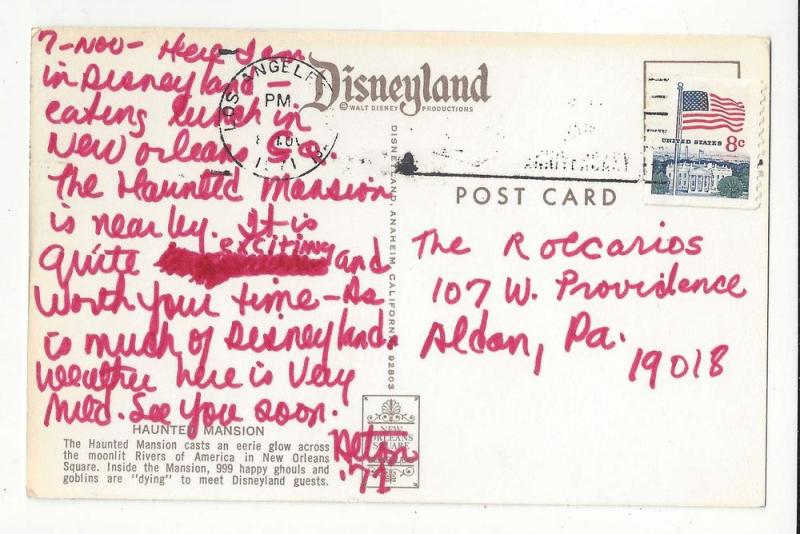 7-Nov- Here I am
in Disneyland -
eating lunch in
New Orleans Sq.
The Haunted Mansion
is nearby. It is
quite exciting and
worth your time - As
is much of Disneyland.
Weather here is very
mild. See you soon.
Alton
'71
HAUNTED MANSION
The Haunted Mansion casts an eerie glow across
the moonlit Rivers of America in New Orleans
Square. Inside the Mansion, 999 happy ghouls and
goblins are "dying" to meet Disneyland guests.
LOS ANGELE
PM
1971
Disneyland
© WALT DISNEY PRODUCTIONS
DISNEYLAND, ANAHEIM CALIFORNIA 92803
NEW
ORLEANS
SQUARE
POST CARD
UNITED STATES 8c
The Roccarios
107 W. Providence
Aldan, Pa.
19018